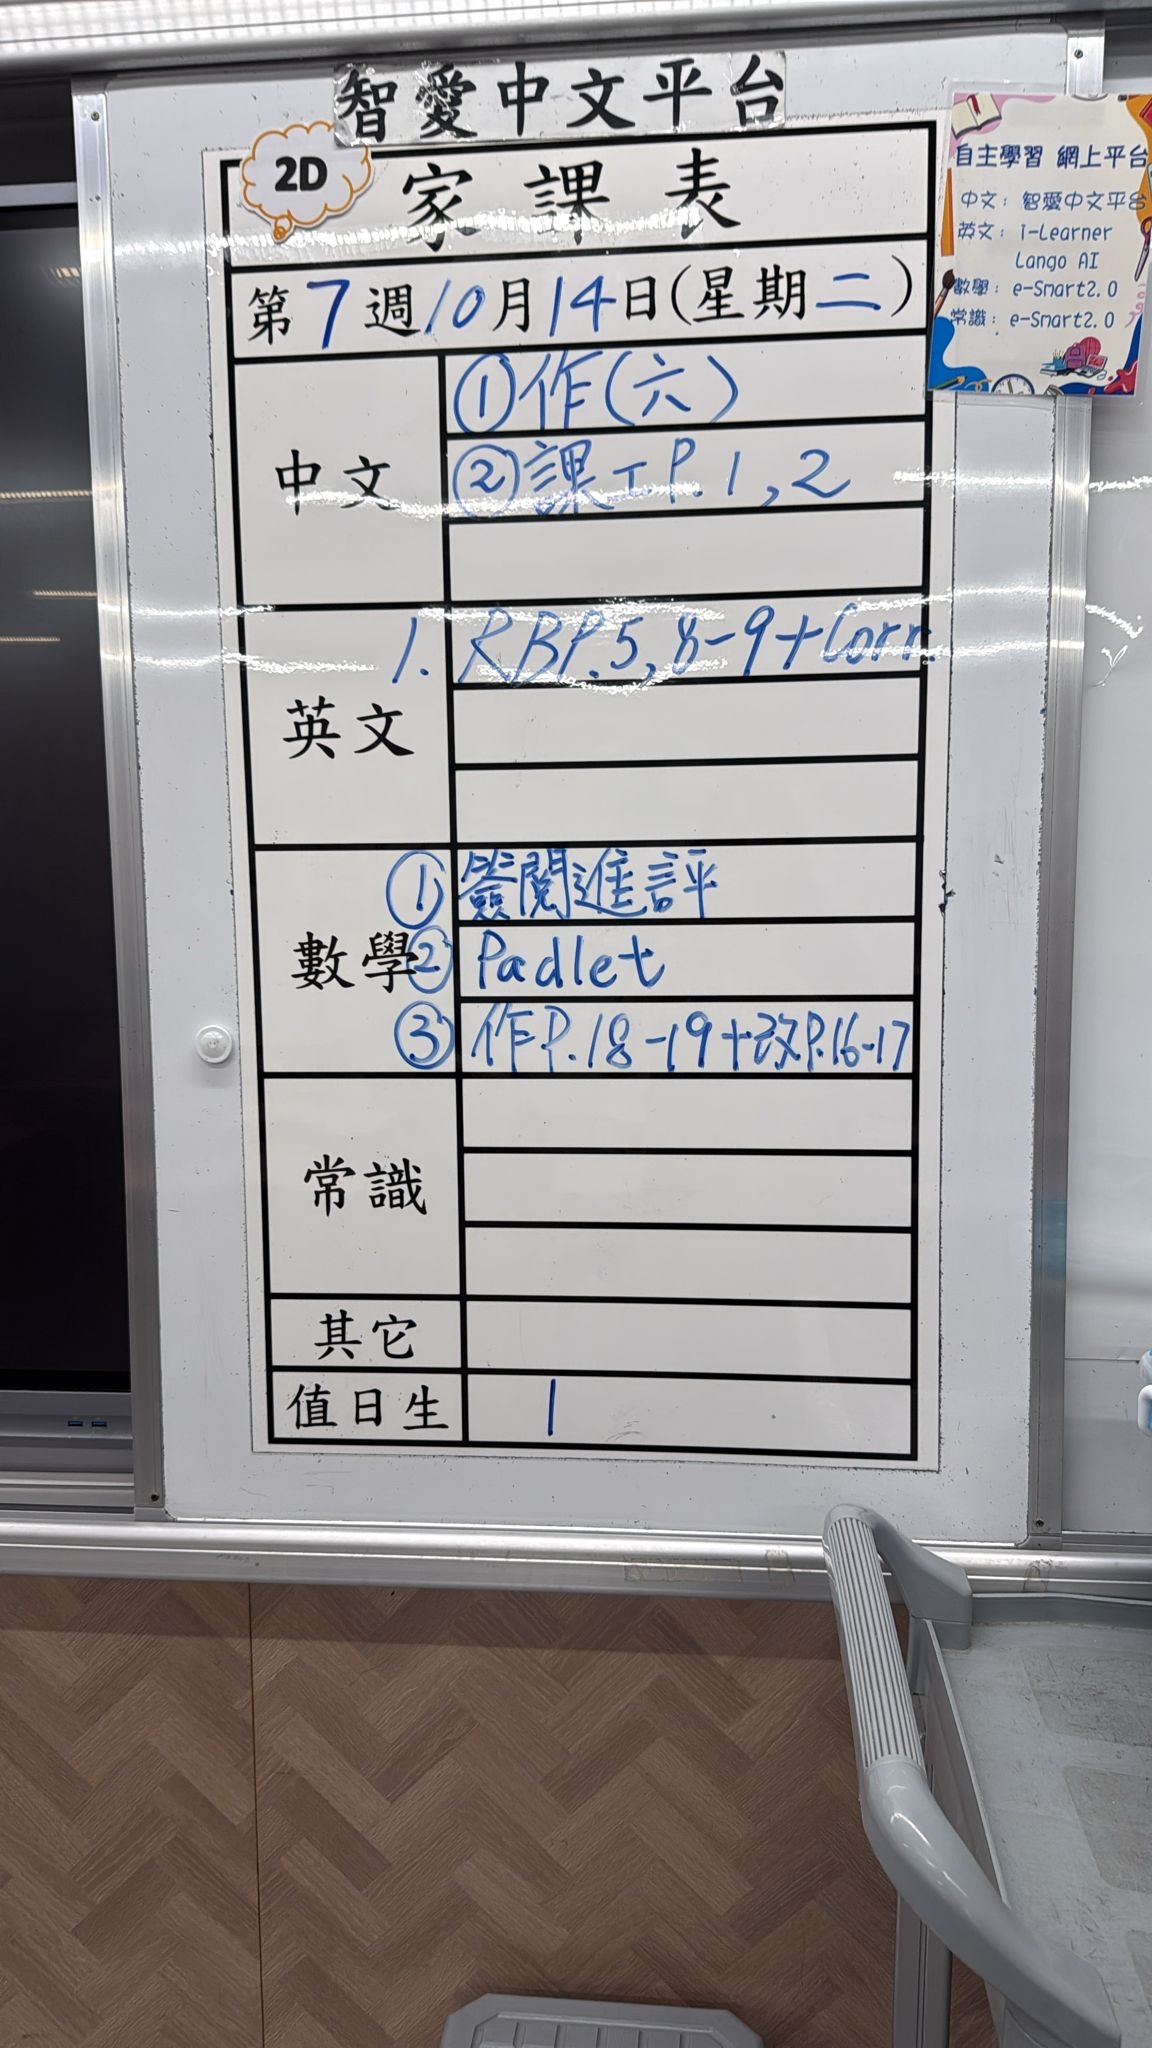 智愛中文平台
2D
家課表
第7週10月14日(星期二)
中文
①作(六)
②課工P.1,2
英文
1. R.B P.5, 8-9+Corr.
數學
①簽閱進評
②Padlet
③作P.18-19+改P.16-17
常識
其它
值日生 1
自主學習 網上平台
中文：智愛中文平台
英文：i-Learner
Lango AI
數學：e-Smart2.0
常識：e-Smart2.0